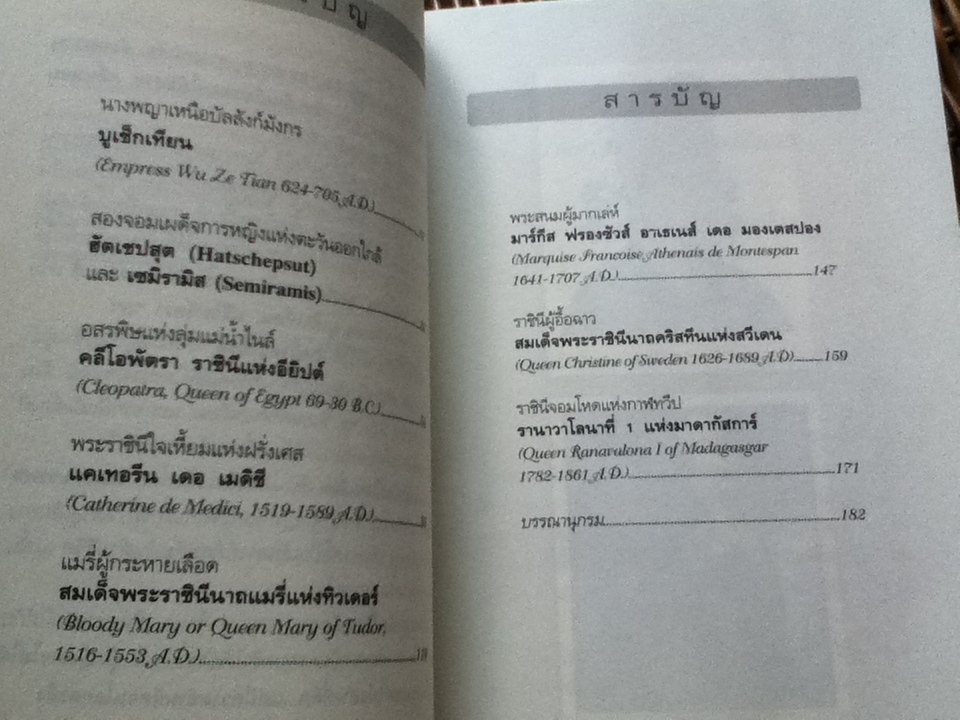 รบัญ
นางพญาเหนือบัลลังก์มังกร
บูเช็กเทียน
(Empress Wu Ze Tian 624-705 A.D.)
สองจอมเผด็จการหญิงแห่งตะวันออกใกล้
ฮัตเชปสุต (Hatschepsut)
และ เซมิรามิส (Semiramis)
อสรพิษแห่งลุ่มแม่น้ำไนล์
คลีโอพัตรา ราชินีแห่งอียิปต์
(Cleopatra, Queen of Egypt 69-30 B.C)
พระราชินีใจเหี้ยมแห่งฝรั่งเศส
แคเทอรีน เดอ เมดิซี
(Catherine de Medici, 1519-1589 A.D.)
แมรี่ผู้กระหายเลือด
สมเด็จพระราชินีนาถแมรี่แห่งทิวเดอร์
(Bloody Mary or Queen Mary of Tudor,
1516-1553 A.D.)
สารบัญ
พระสนมผู้มากเล่ห์
มาร์กีส ฟรองซัวส์ อาเธเนส์ เดอ มองเตสปอง
(Marquise Francoise Athenais de Montespan
1641-1707 A.D.) 147
ราชินีผู้อื้อฉาว
สมเด็จพระราชินีนาถคริสทีนแห่งสวีเดน
(Queen Christine of Sweden 1626-1689 A.D) 159
ราชินีจอมโหดแห่งกาฬทวีป
รานาวาโลนาที่ 1 แห่งมาดากัสการ์
(Queen Ranavalona I of Madagasgar
1782-1861 A.D.) 171
บรรณานุกรม 182